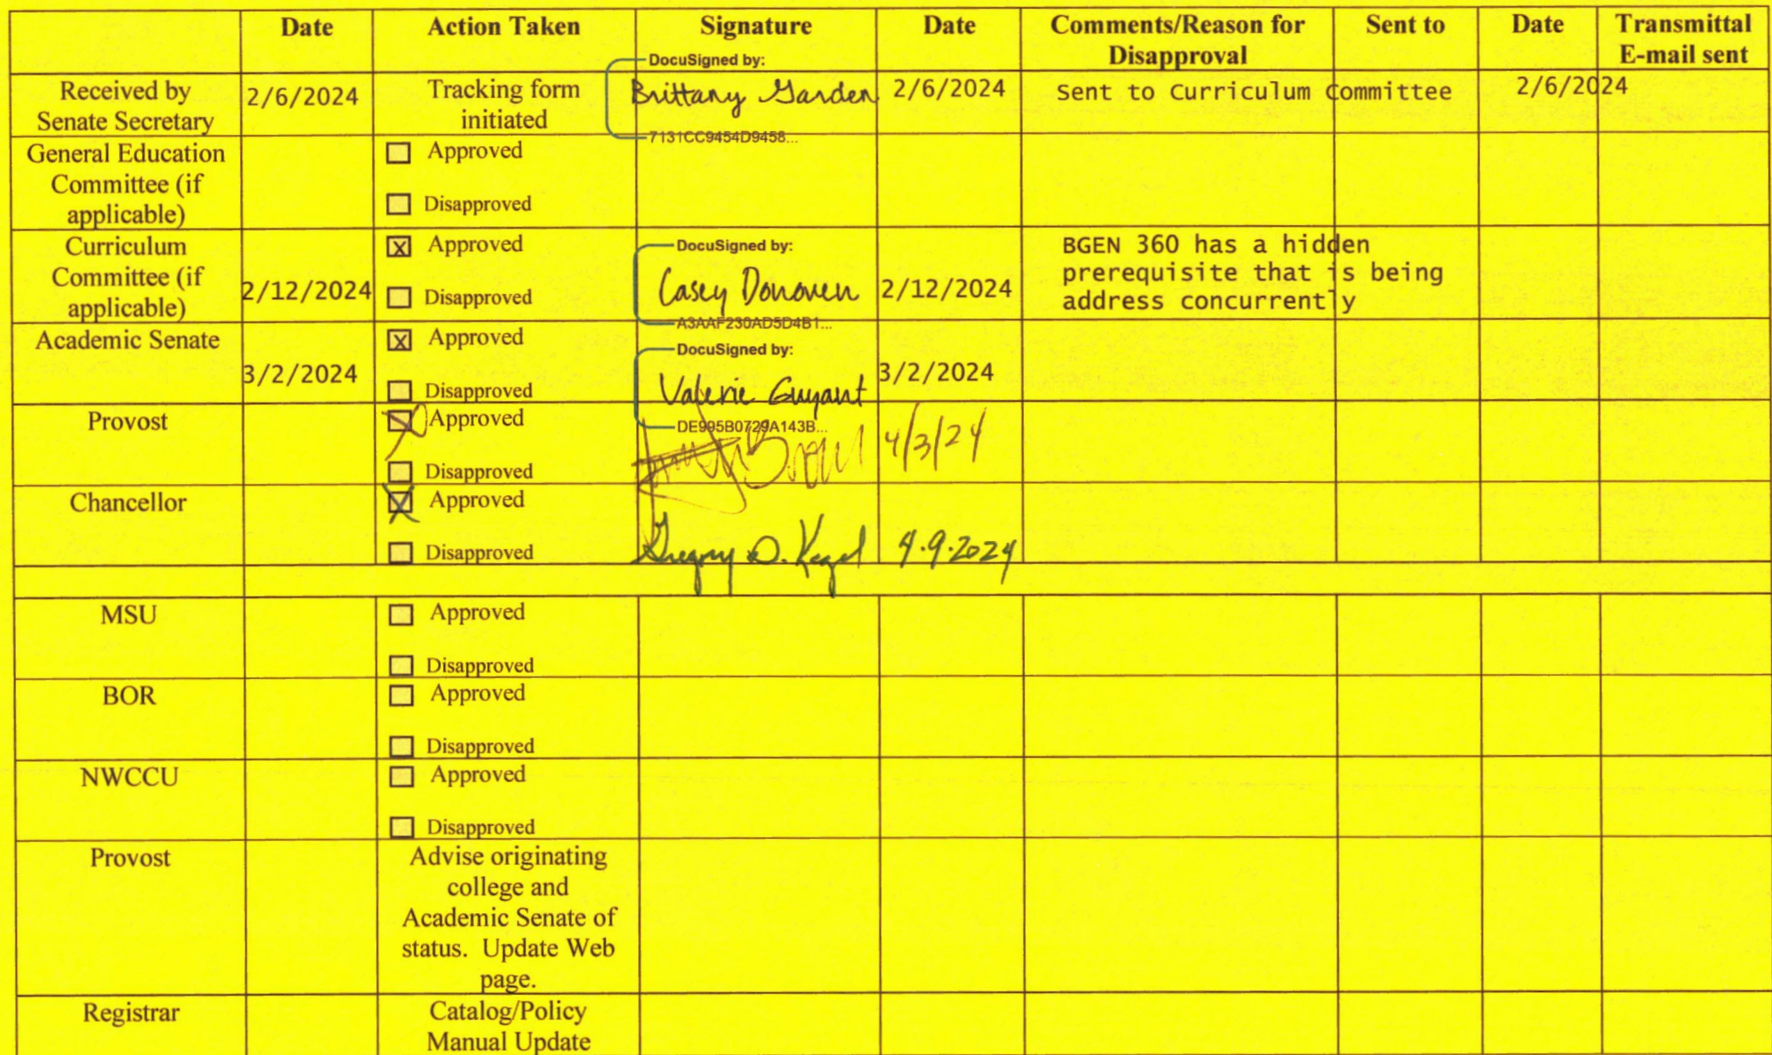 Date Action Taken Signature Date Comments/Reason for Disapproval Sent to Date Transmittal E-mail sent
DocuSigned by:
Received by Senate Secretary 2/6/2024 Tracking form initiated Brittany Garden 2/6/2024 Sent to Curriculum Committee 2/6/2024
7131CC9454D9458...
General Education Committee (if applicable) Approved
Disapproved
Curriculum Committee (if applicable) 2/12/2024 Approved
Disapproved
DocuSigned by:
Casey Donoven 2/12/2024
A3AAF230AD5D4B1...
BGEN 360 has a hidden
prerequisite that is being
address concurrently
Academic Senate 3/2/2024 Approved
Disapproved
DocuSigned by:
Valerie Guyant 3/2/2024
DE995B0729A143B...
Provost Approved
Disapproved
4/3/24
Chancellor Approved
Disapproved
Gregory D. Kegel 4.9.2024
MSU Approved
Disapproved
BOR Approved
Disapproved
NWCCU Approved
Disapproved
Provost Advise originating
college and
Academic Senate of
status. Update Web
page.
Registrar Catalog/Policy
Manual Update